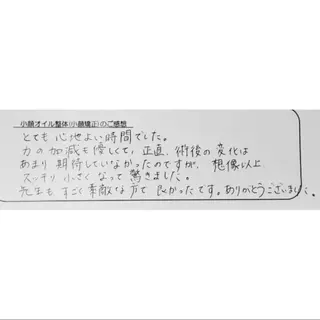 小顔オイル整体(小顔矯正)のご感想
とても心地よい時間でした。
力の加減も優しくて、正直、術後の変化は
あまり期待していなかったのですが、想像以上
スッキリ小さくなって驚きました。
先生もすごく素敵な方で良かったです。ありがとうございました。